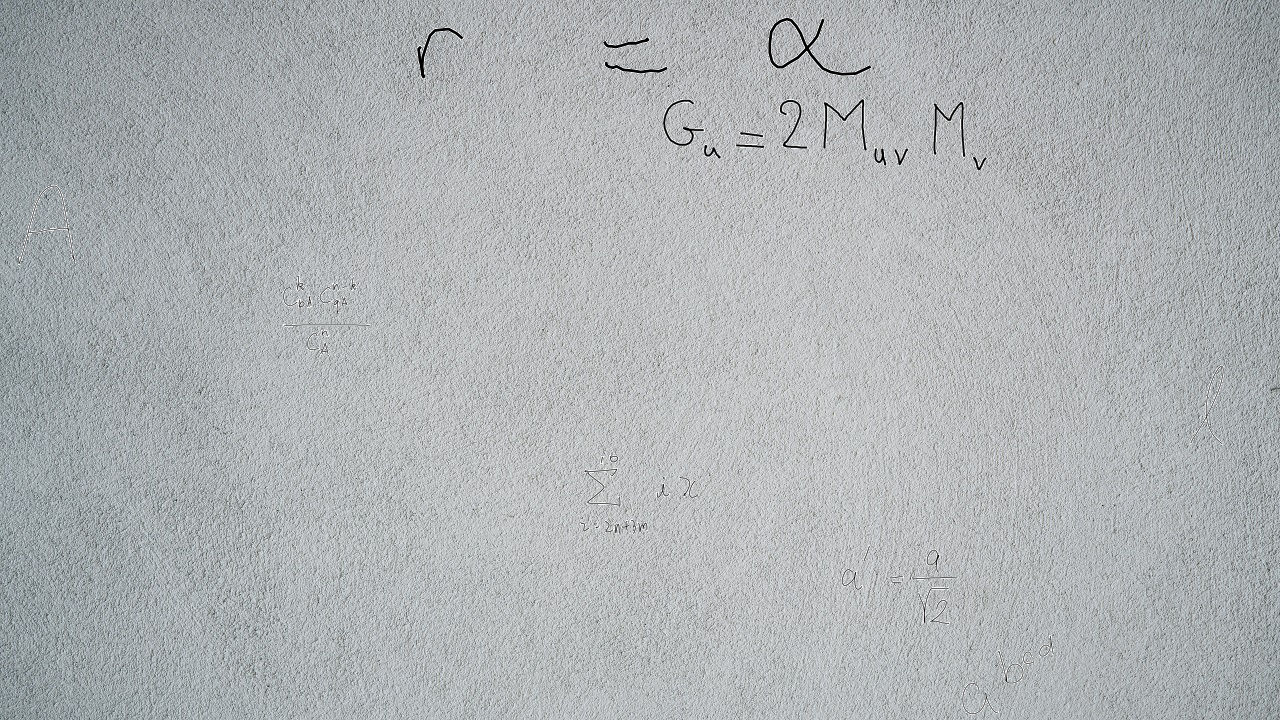 r = α
G_u = 2 M_{uv} M_v
A
\frac{C_{pA}^{k} C_{qA}^{n-k}}{C_{A}^{n}}
\sum_{i=2n+3m}^{10} i x
a' = \frac{a}{\sqrt{2}}
a^{b^{c^{d}}}